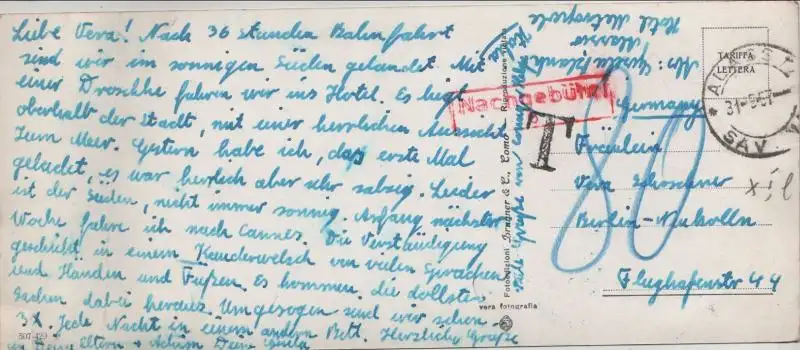 Liebe Vera! Nach 36 stunden Bahnfahrt
sind wir im sonnigen Süden gelandet. Mit
einer Droschke fahren wir ins Hotel. Es liegt
oberhalb der Stadt, mit einer herrlichen Aussicht
zum Meer. Gestern habe ich, das erste Mal
gebadet, es war herrlich aber sehr salzig. Leider
ist der Süden, nicht immer sonnig. Anfang nächster
Woche fahre ich nach Cannes. Die Verständigung
geschieht in einem Kauderwelsch von vielen Sprachen
und Händen und Füßen. Es kommen die dollsten
Sachen dabei heraus. Umgezogen sind wir schon
3x. Jede Nacht in einem andern Bett. Herzliche Grüße
Deine Eltern + Achim Deine
507-429
Fotoedizioni Brunner & C., Como - Riproduzione
vera fotografia
Hotel Metropole
Nachgebühr
T
80
TARIFFA
LETTERA
ALASSIO
31-5-57
SAV
Germany
Fräulein
Vera
Berlin-Neukölln
Flughafenstr 44